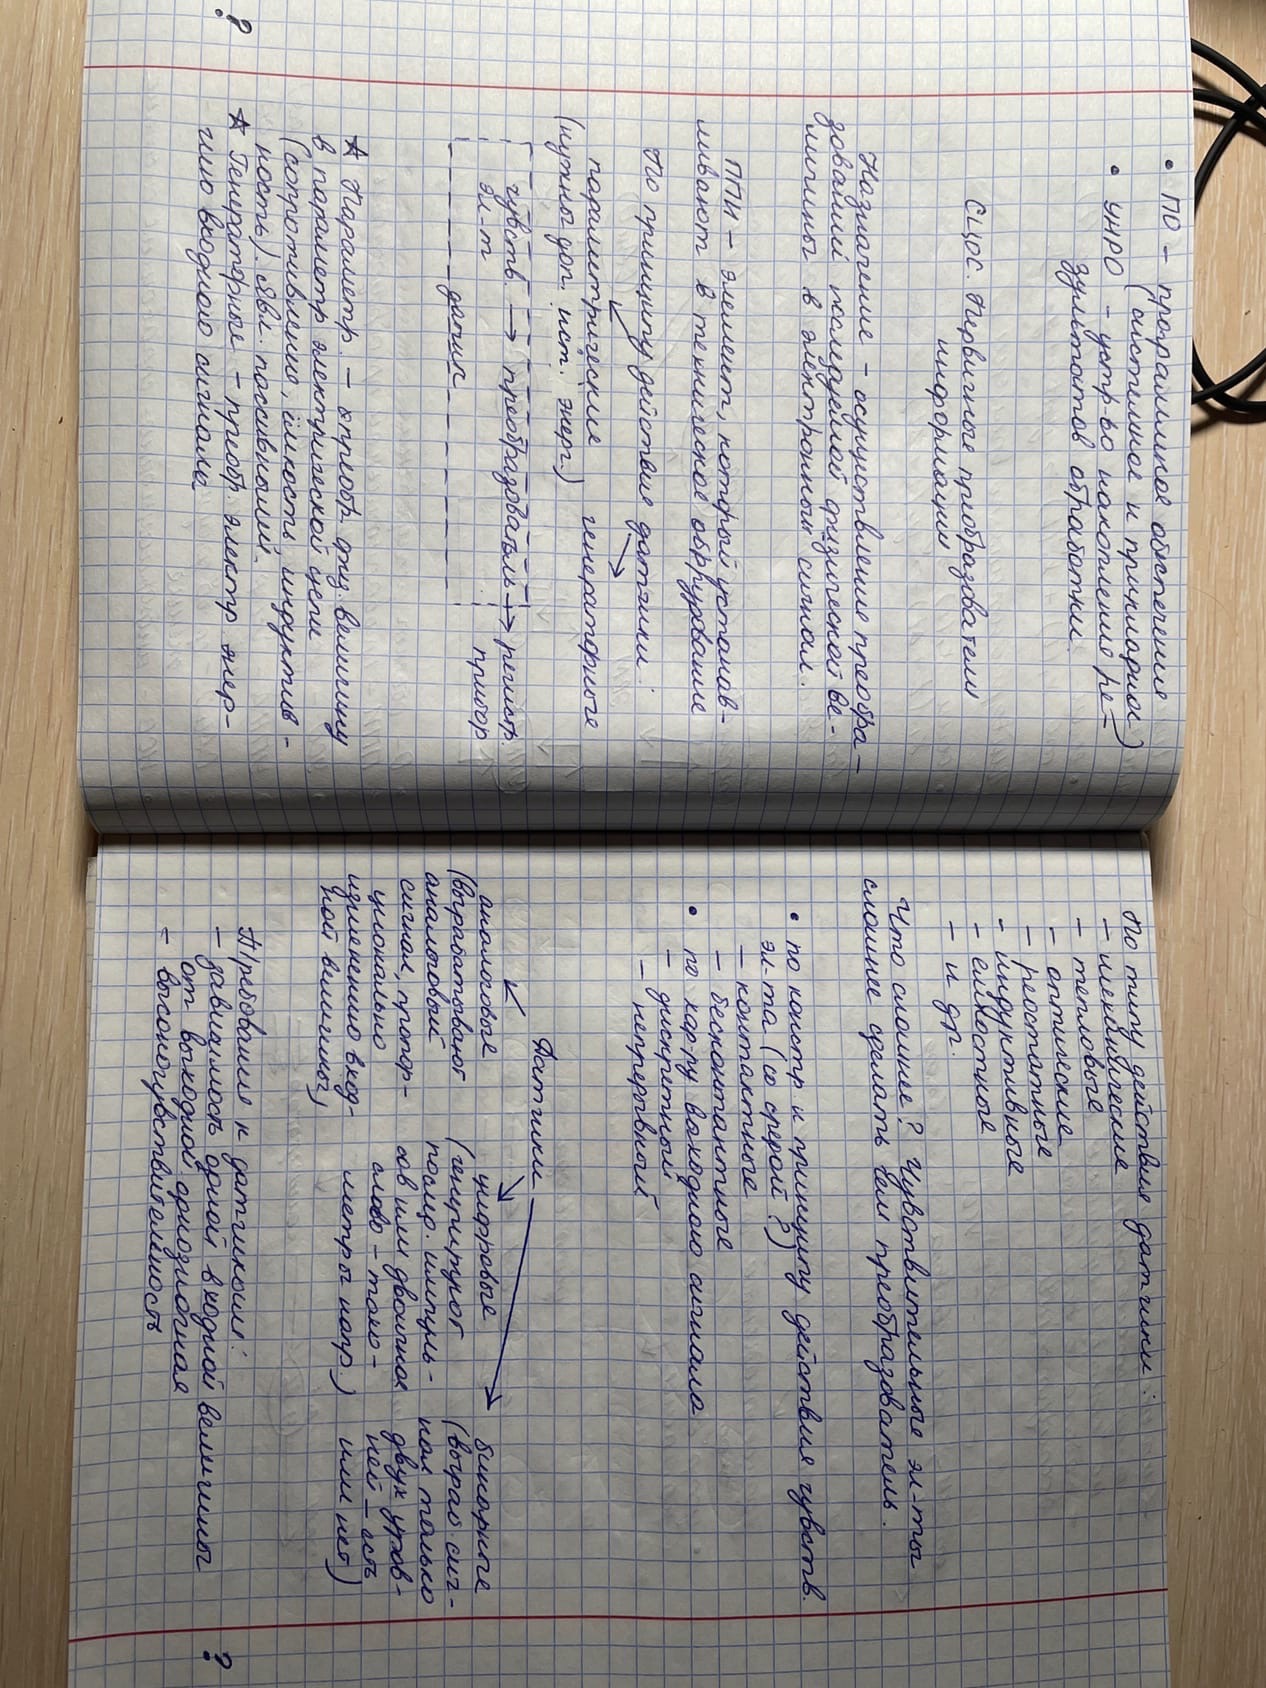 • ПО – программное обеспечения
(системное и прикладное)
• УНРО – устр-во накопление ре-
зультатов обработки.
СЦОС. Первичные преобразователи
информации
Назначение – осуществление преобра-
зований последуемой физической ве-
личины в электронный сигнал.
ППИ – элемент, который устанав-
ливают в техническое обррудование
По принципу действия датчики:
параметрические генераторные
(нужны доп. ист. энерг.)
чувств. → преобразователь → регистр.
эл-т прибор
датчик
☆ Параметр. – преобр. физ. величину
в параметр электрической цепи
(сопротивление, ёмкость, индуктив-
ность). Явл. пассивными.
? ☆ Генераторные – преобр. электр энер-
гию входного сигнала
По типу действия датчики:
– механические
– тепловые
– оптические
– реостатные
– индуктивные
– ёмкостные
– и др.
Что сложнее? Чувствительные эл-ты
сложнее сделать чем преобразователь.
• по констр и принципу действия чувств.
эл-та (со средой?)
– контактные
– бесконтактные
• по хар-ру выходного сигнала
– дискретный
– непрерывный
Датчики
аналоговые цифровые бинарные
(вырабатывают (генерируют (выраб. сиг-
аналоговый послед. импуль- нал только
сигнал, пропор- сов или двоичное двух уров-
ционально слово – тахо- ней – есть
изменению вход- метры напр.) или нет)
ной величины)
Требования к датчикам:
– зависимость одной входной величины ?
от выходной однозначная
– высокочувствительность